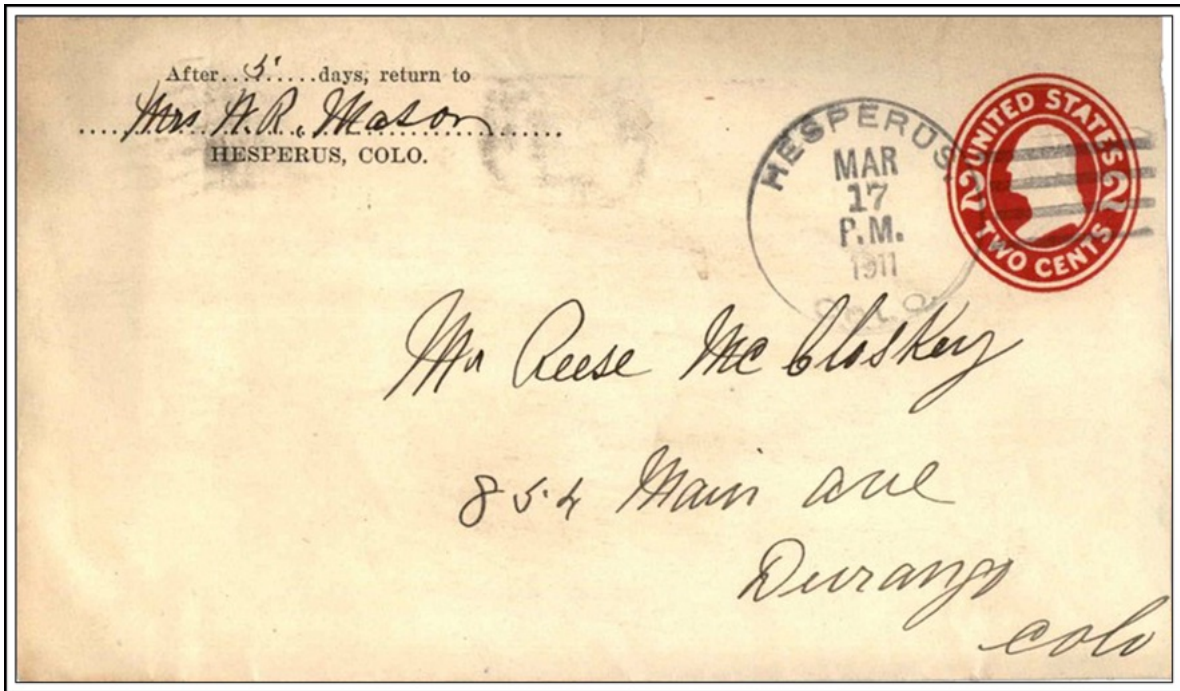 After....5....days, return to
Mrs H. R. Mason
HESPERUS, COLO.
HESPERUS,
MAR
17
P.M.
1911
COLO.
UNITED STATES
2 2
TWO CENTS
Mr Reese McCloskey
854 Main ave
Durango
Colo